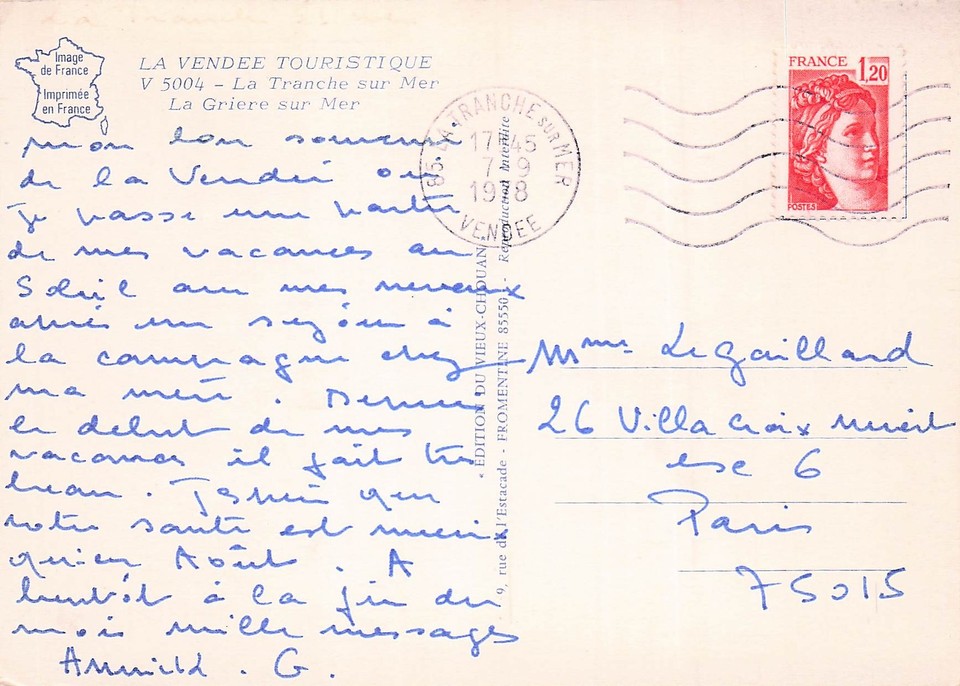 Image
de France
Imprimée
en France
LA VENDEE TOURISTIQUE
V 5004 - La Tranche sur Mer
La Griere sur Mer
mon bon souvenir
de la Vendée où
je passe une partie
de mes vacances au
Soleil avec mes neveux
après un séjour à
la campagne chez
ma mère. Depuis
le début de mes
vacances il fait très
beau. J'espère que
votre santé est mieux
qu'en Août. A
bientôt à la fin du
mois mille messages
G.
85 - LA TRANCHE SUR MER
17H45
7-9
1978
VENDEE
« EDITION DU VIEUX-CHOUAN »
9, rue de l'Estacade - FROMENTINE 85550 - Reproduction Interdite
FRANCE 1,20
POSTES
Mme Le Gaillard
26 Villa Croix Nivert
esc 6
Paris
75015